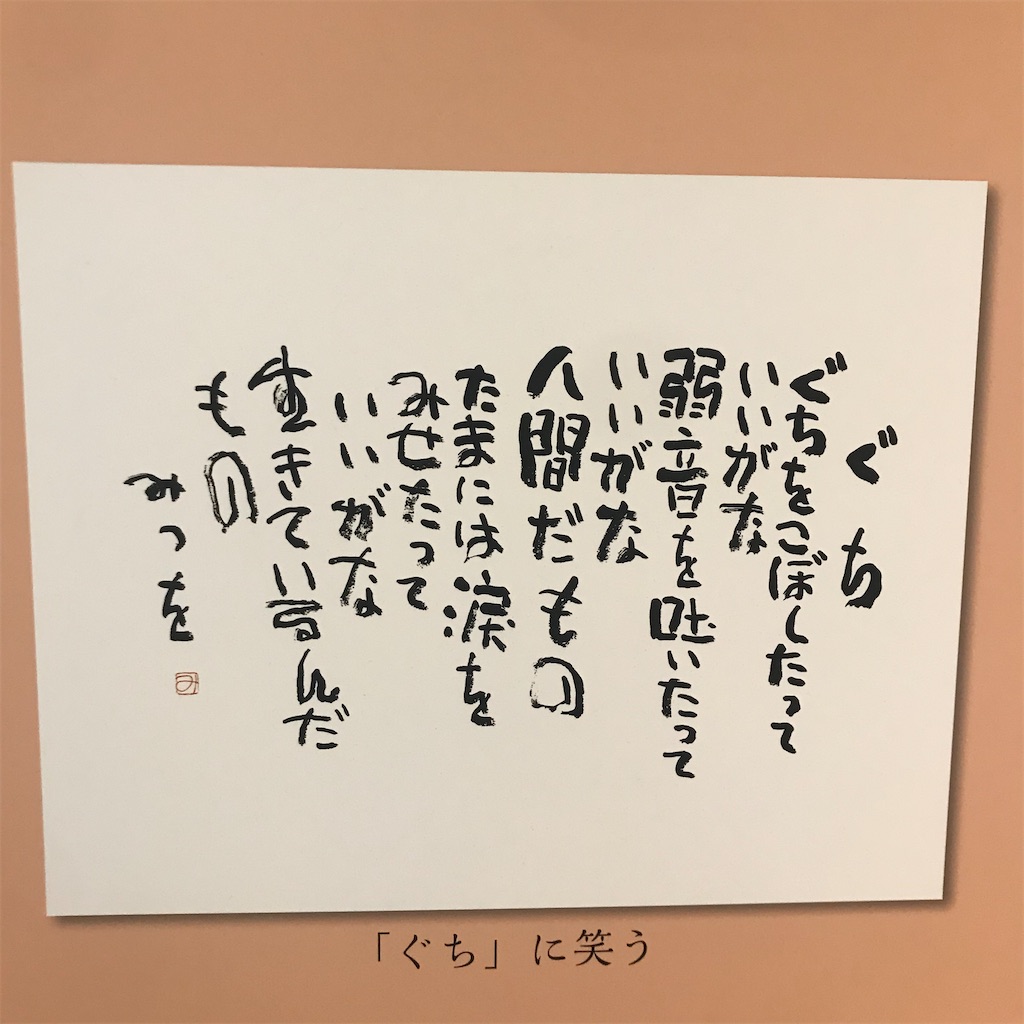 ぐち
ぐちをこぼしたって
いいがな
弱音を吐いたって
いいがな
人間だもの
たまには涙を
みせたって
いいがな
生きているんだ
もの
みつを
み
「ぐち」に笑う